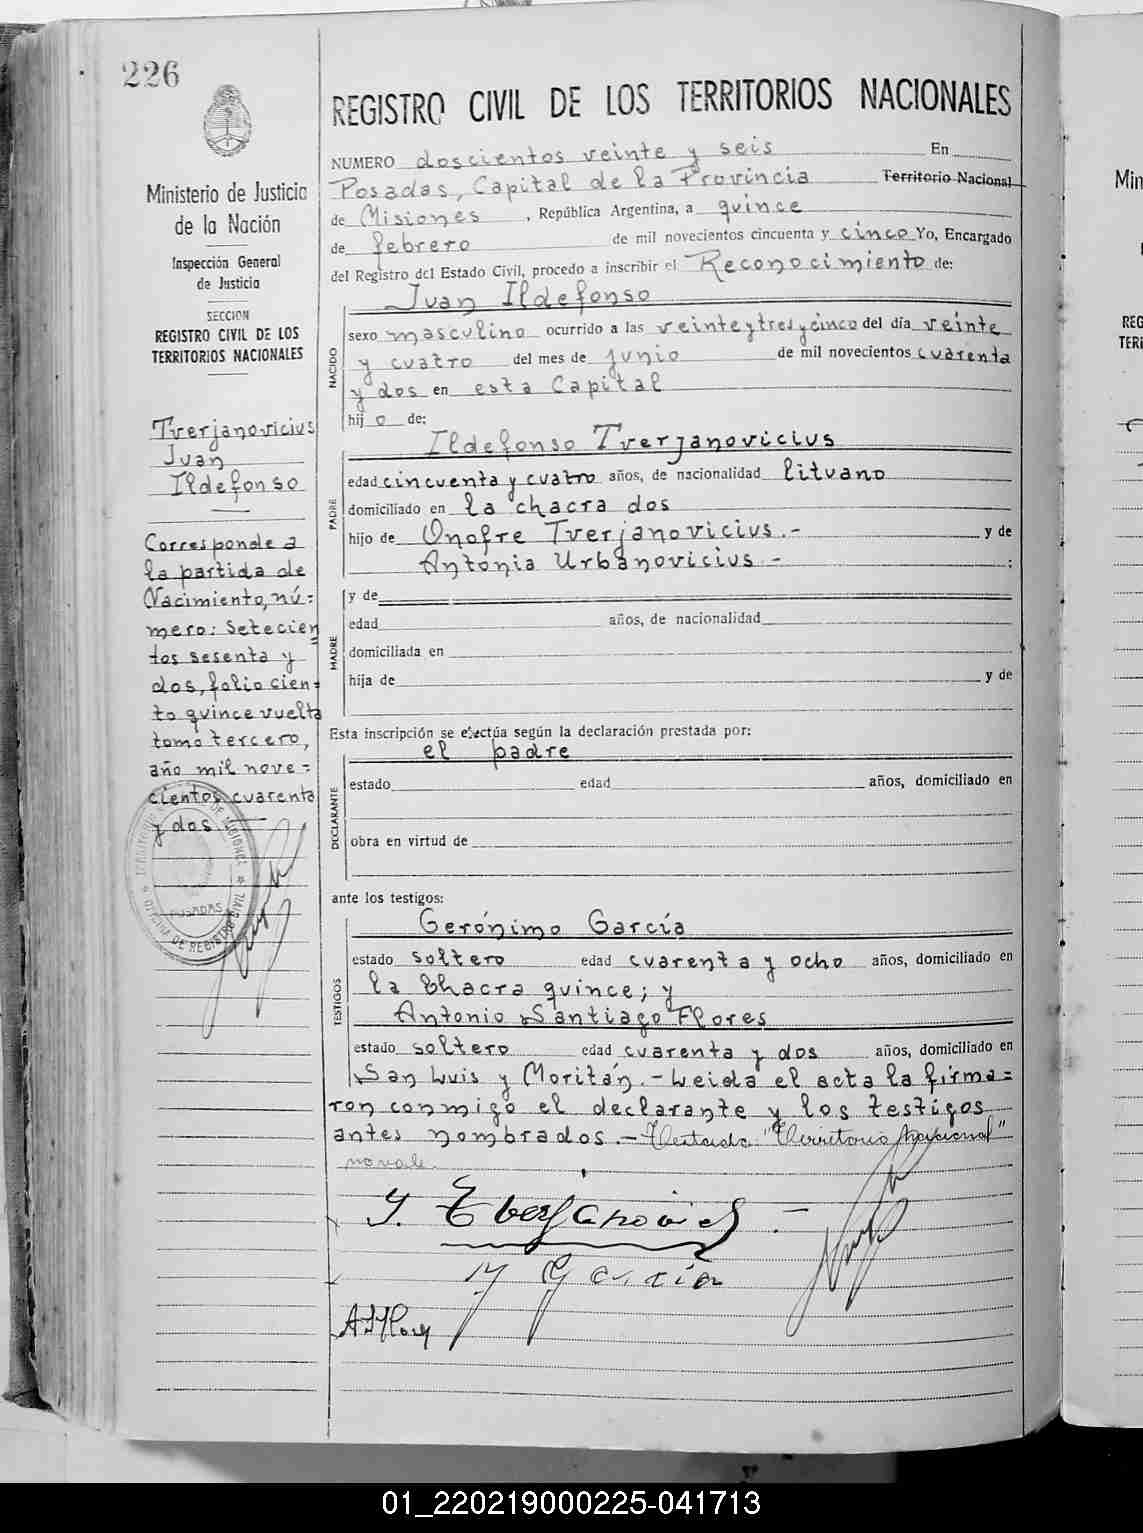 226
Ministerio de Justicia
de la Nación
Inspección General
de Justicia
SECCION
REGISTRO CIVIL DE LOS
TERRITORIOS NACIONALES
Tverjanovicius
Juan
Ildefonso
Corresponde a
la partida de
Nacimiento, nú=
mero: Setecien=
tos sesenta y
dos, folio cien=
to quince vuelta
tomo tercero,
año mil nove=
cientos cuarenta
y dos.
POSADAS
OFICINA DE REGISTRO CIVIL
REGISTRO CIVIL DE LOS TERRITORIOS NACIONALES
NUMERO doscientos veinte y seis En
Posadas, Capital de la Provincia Territorio Nacional
de Misiones , República Argentina, a quince
de febrero de mil novecientos cincuenta y cinco Yo, Encargado
del Registro del Estado Civil, procedo a inscribir el Reconocimiento de:
Juan Ildefonso
NACIDO
sexo masculino ocurrido a las veinteytresycinco del día veinte
y cuatro del mes de junio de mil novecientos cuarenta
y dos en esta Capital
hijo de:
Ildefonso Tverjanovicius
PADRE
edad cincuenta y cuatro años, de nacionalidad lituano
domiciliado en la chacra dos
hijo de Onofre Tverjanovicius.- y de
Antonia Urbanovicius.- :
MADRE
y de
edad años, de nacionalidad
domiciliada en
hija de y de
Esta inscripción se efectúa según la declaración prestada por:
el padre
DECLARANTE
estado edad años, domiciliado en
obra en virtud de
ante los testigos:
TESTIGOS
Gerónimo García
estado soltero edad cuarenta y ocho años, domiciliado en
la Chacra quince; y
Antonio Santiago Flores
estado soltero edad cuarenta y dos años, domiciliado en
San Luis y Moritán.- Leida el acta la firma=
ron conmigo el declarante y los testigos
antes nombrados.- Testado: "Territorio Nacional"
no vale.
García
01_220219000225-041713